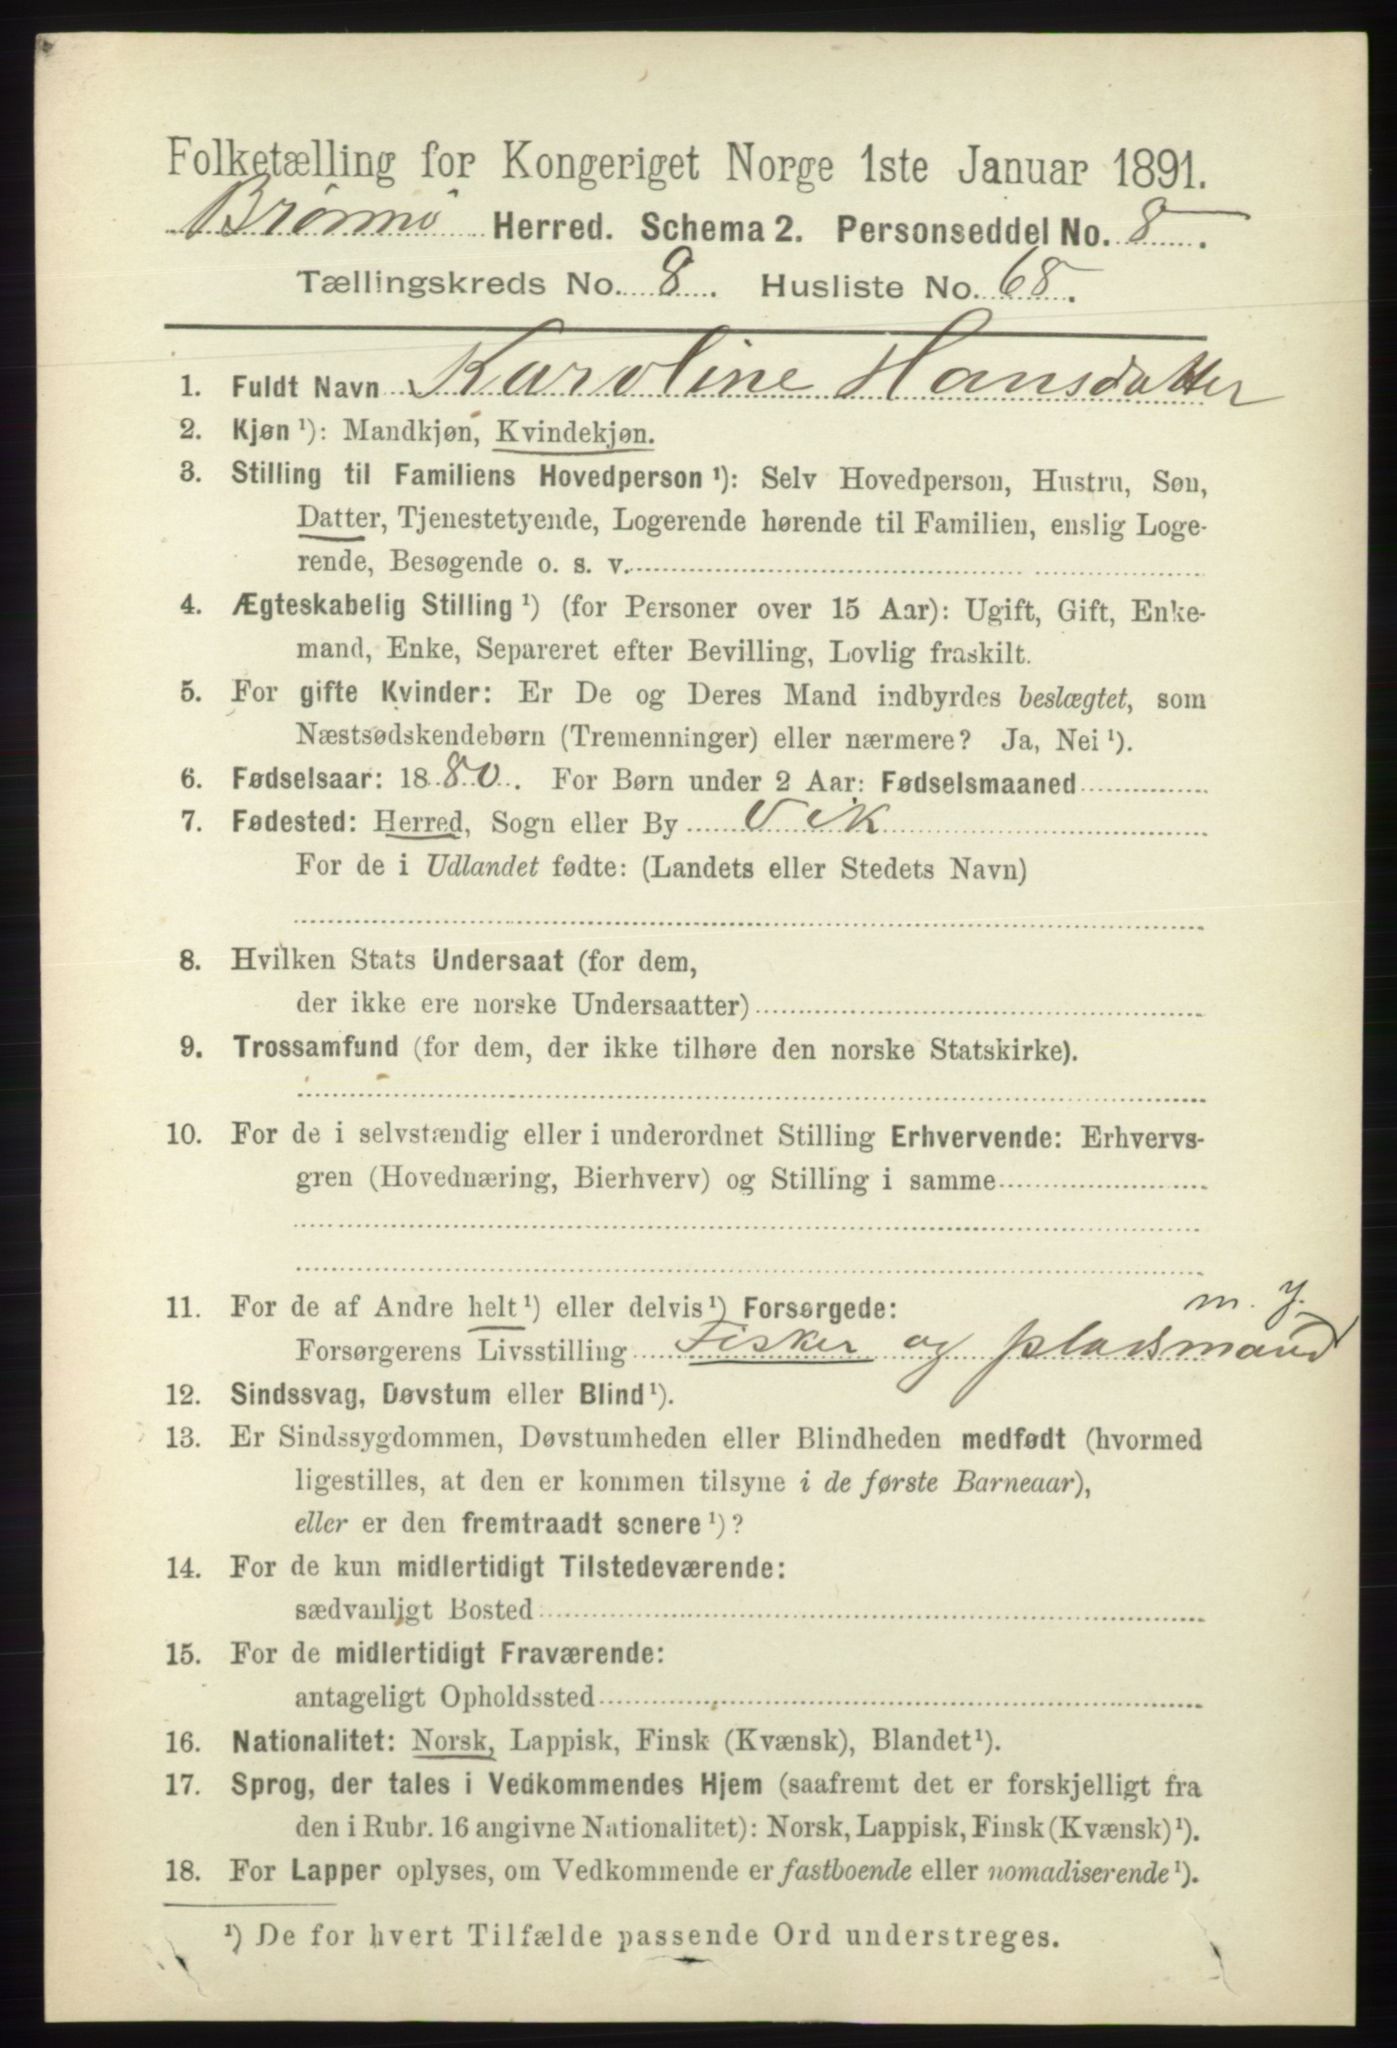 Folketælling for Kongeriget Norge 1ste Januar 1891.
Brønnø Herred. Schema 2. Personseddel No. 8.
Tællingskreds No. 8. Husliste No. 68.
1. Fuldt Navn Karoline Hansdatter
2. Kjøn ¹): Mandkjøn, Kvindekjøn.
3. Stilling til Familiens Hovedperson ¹): Selv Hovedperson, Hustru, Søn,
Datter, Tjenestetyende, Logerende hørende til Familien, enslig Loge-
rende, Besøgende o. s. v.
4. Ægteskabelig Stilling ¹) (for Personer over 15 Aar): Ugift, Gift, Enke-
mand, Enke, Separeret efter Bevilling, Lovlig fraskilt.
5. For gifte Kvinder: Er De og Deres Mand indbyrdes beslægtet, som
Næstsødskendebørn (Tremenninger) eller nærmere? Ja, Nei ¹).
6. Fødselsaar: 1880. For Børn under 2 Aar: Fødselsmaaned
7. Fødested: Herred, Sogn eller By Vik
For de i Udlandet fødte: (Landets eller Stedets Navn)
8. Hvilken Stats Undersaat (for dem,
der ikke ere norske Undersaatter)
9. Trossamfund (for dem, der ikke tilhøre den norske Statskirke).
10. For de i selvstændig eller i underordnet Stilling Erhvervende: Erhvervs-
gren (Hovednæring, Bierhverv) og Stilling i samme
11. For de af Andre helt ¹) eller delvis ¹) Forsørgede:
m. j.
Forsørgerens Livsstilling Fisker og pladsmand
12. Sindssvag, Døvstum eller Blind ¹).
13. Er Sindssygdommen, Døvstumheden eller Blindheden medfødt (hvormed
ligestilles, at den er kommen tilsyne i de første Barneaar),
eller er den fremtraadt senere ¹)?
14. For de kun midlertidigt Tilstedeværende:
sædvanligt Bosted
15. For de midlertidigt Fraværende:
antageligt Opholdssted
16. Nationalitet: Norsk, Lappisk, Finsk (Kvænsk), Blandet ¹).
17. Sprog, der tales i Vedkommendes Hjem (saafremt det er forskjelligt fra
den i Rubr. 16 angivne Nationalitet): Norsk, Lappisk, Finsk (Kvænsk) ¹).
18. For Lapper oplyses, om Vedkommende er fastboende eller nomadiserende ¹).
¹) De for hvert Tilfælde passende Ord understreges.